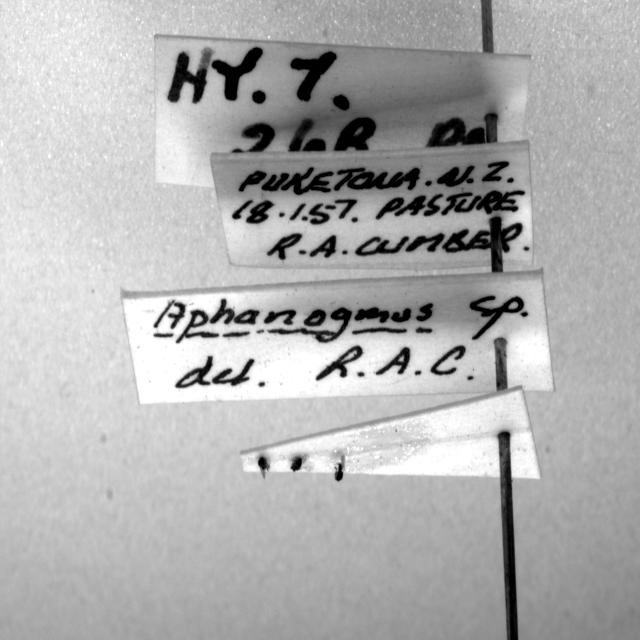 HY. 7.
PUKETOUA. N.Z.
18.1.57. PASTURE
R.A. CUMBER.
Aphanogmus sp.
det. R.A.C.